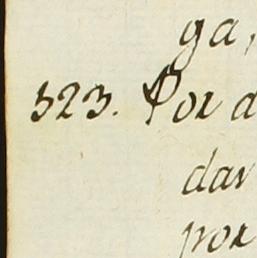 ga,
323. Por d
dar
por